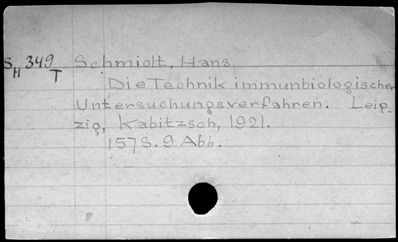 SH 349 T Schmidt, Hans.
Die Technik immunbiologischer
Untersuchungsverfahren. Leip-
zig, Kabitzsch, 1921.
157S. 9 Abb.